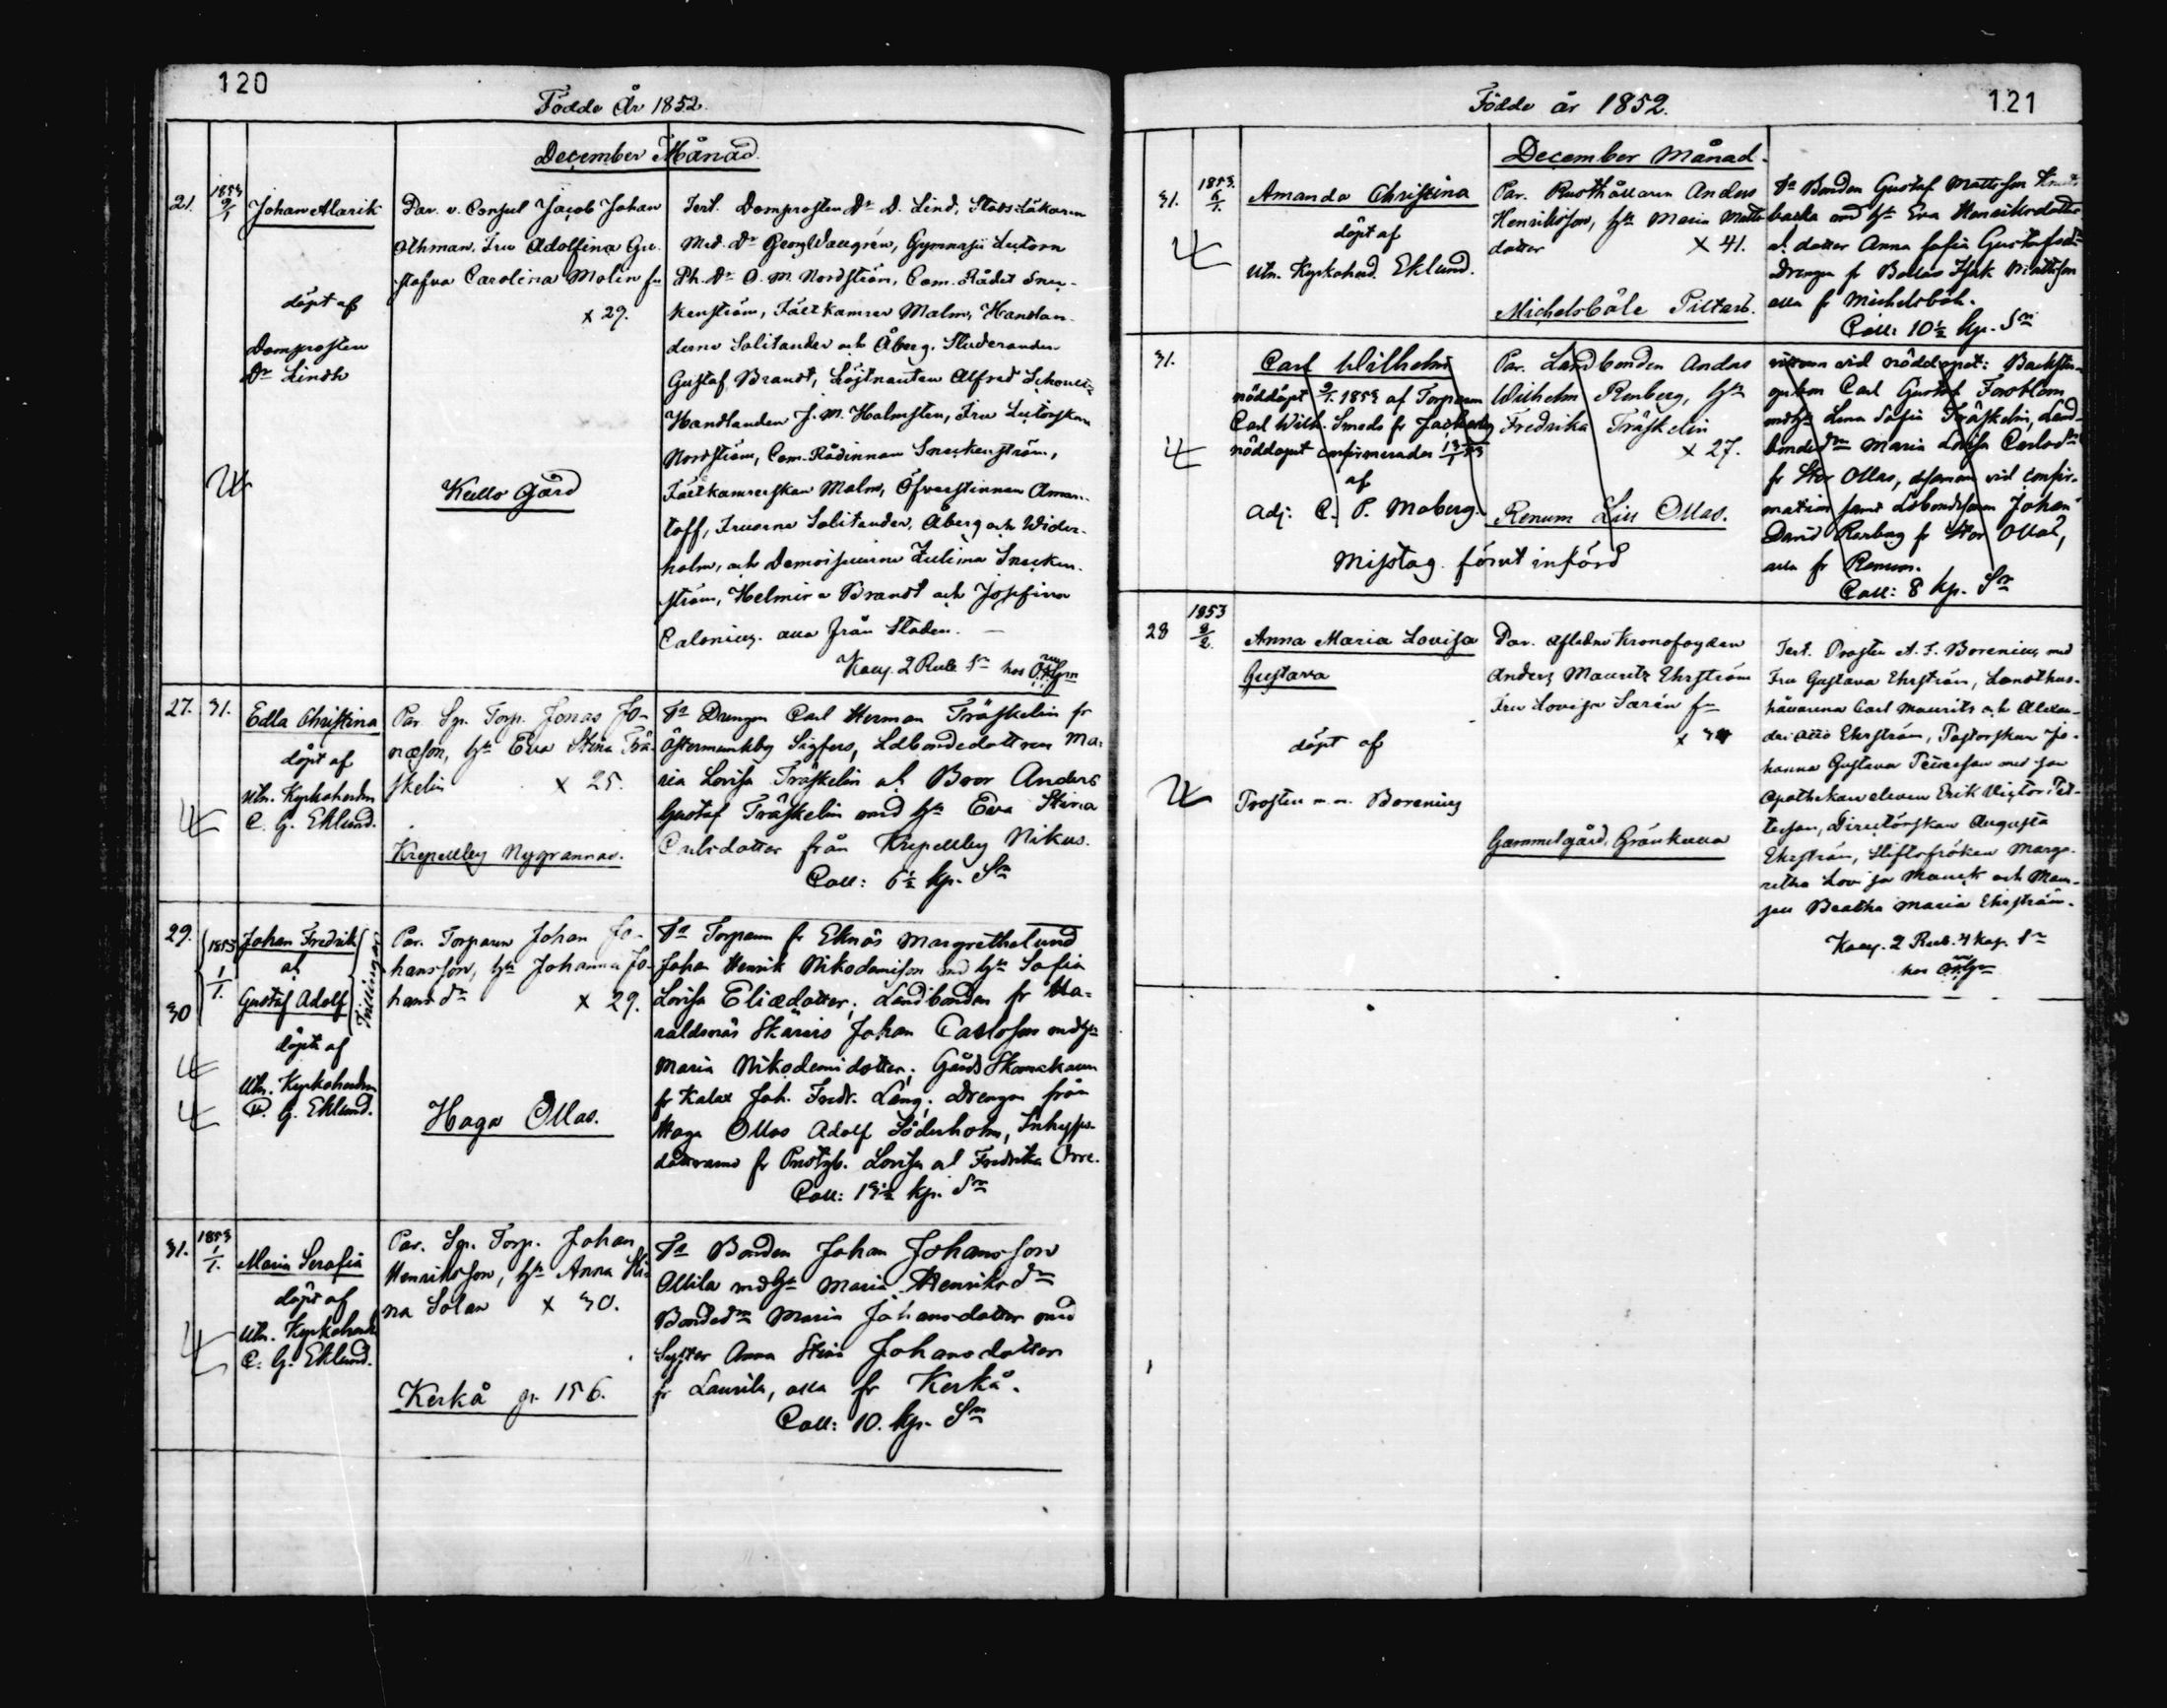 120
Födde År 1852.
December Månad.
21. 1853 9/1 Johan Alarik
döpt af
Domprosten
Dr Lindh
Par. v. Consul Jacob Johan
Othman. Fru Adolfina Gu-
stafva Carolina Molin
x 29.
Kullo Gård
Test. Domprosten Dr D. Lind, Stads Läkaren
Med. Dr Georg Wallgrén, Gymnasii Lectorn
Ph. Dr O. M. Nordström, Com. Rådet Snec-
kenström, Fältkamrer Malm, Handlan-
derne Solitander och Åberg, Studeranden
Gustaf Brandt, Löjtnanten Alfred
Handlanden J. M. Holmsten, Fru Lectorskan
Nordström, Com. Rådinnan Sneckenström,
Fältkamrerskan Malm, Öfverstinnan Aman-
toff, Fruarna Solitander, Åberg och Wider-
holm, och Demoisellerna Zulima Snecken-
ström, Helmina Brandt och Josefina
Calonius. alla från Staden.
2 Rub. Sr hos
27. 31. Edla Christina
döpt af
C. G. Eklund.
Par. Torp. Jonas Jo-
naeson, hu Eva Stina Trä-
skelin x 25.
Krepelby Nygrannas.
Drengen Carl Herman Träskelin fr
Östermunkby Sigfers, Ldbondedottren Ma-
ria Lovisa Träskelin och Broor Anders
Gustaf Träskelin med hu Eva Stina
Carlsdotter från Krepelby Nikus.
Coll: 6½ kp. Sr
29. 30 1853 1/1 Johan Fredrik
och
Gustaf Adolf
Tvillingar
döpte af
Vtn. Kyrkoherden
C. G. Eklund.
Par. Torparen Johan Jo-
hansson, hu Johanna Jo-
hansdr x 29.
Haga Ollas.
Torparen fr Eknäs Margrethelund
Johan Henrik Nikodemison med hu Sofia
Lovisa Eliædotter; Landbonden fr Ha-
raldsnäs Johan Carlsson med hu
Maria Nikodemidotter; Gårds Skomakaren
fr Kalax Joh. Fredr. Lång; Drengen från
Haga Ollas Adolf Söderholm,
döttrarne fr Lovisa och Fredrika Orre.
Coll: kp. Sr
31. 1853 1/1. Maria Serafia
döpt af
Vtn. Kyrkoherden
C. G. Eklund.
Par. Torp. Johan
Henriksson, hu Anna Sti-
na Solan x 30.
Kerkå gr. 156.
Bonden Johan Johansson
Ollila med hu Maria Henriksdr
Bondedr Maria Johansdotter med
Syster Anna Stina Johansdotter
fr Laurila, alla fr Kerkå.
Coll: 10. kp. Sr
Födde år 1852.
121
December månad.
31. 1853. 6/1. Amanda Christina
döpt af
Vtn. Kyrkoherd. Eklund.
Par. Rusthållaren Anders
Henriksson, hu Maria Matts-
dotter x 41.
Michelsböle Piltars.
Bonden Gustaf Mattsson
backa med hu Eva Henriksdotter
och dotter Anna Sofia Gustafsdr
Drengen fr Bollas Isak Mattsson
alla fr Michelsböle.
Coll: 10½ kp. Sr
31. Carl Wilhelm
nöddöpt 9/1 1853 af Torparen
Carl Wilh. Smeds fr
nöddopet confirmerades
af
Adj: C. P. Moberg.
Par. Landbonden Anders
Wilhelm Renberg, hu
Fredrika Träskelin
x 27.
Renum Lill Ollas.
Misstag. förut införd
vittnen vid nöddopet:
Carl Gustaf Forsblom
med hu Lena Sofia Träskelin, Land-
bondedr Maria Lovisa Carlsdr
fr Stor Ollas, desamma vid confir-
mation samt Ldbondesonen Johan
David Renberg fr Stor Ollas,
alla fr Renum.
Coll: 8 kp. Sr
28 1853 8/2. Anna Maria Lovisa
Gustava
döpt af
Prosten m. m. Borenius
Par. afledne Kronofogden
Anders Maurits Ehrström
Fru Lovisa Sarén
Gammelgård, Gränkulla
Test. Prosten A. F. Borenius med
Fru Gustava Ehrström, Landthus-
hållarena Carl Maurits och Alexan-
der Otto Ehrström, Pastorskan Jo-
hanna Gustava Petterson med son
Apothekareeleven Erik Victor Pet-
terson, Directörskan Augusta
Ehrström, Stiftsfröken Marga-
retha Lovisa Munck och Mam-
sell Beatha Maria Ehrström.
2 Rub. 4 kop. Sr
hos